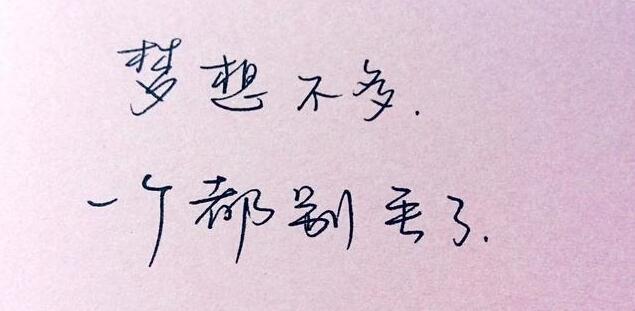 梦想不多.
一个都别丢了.